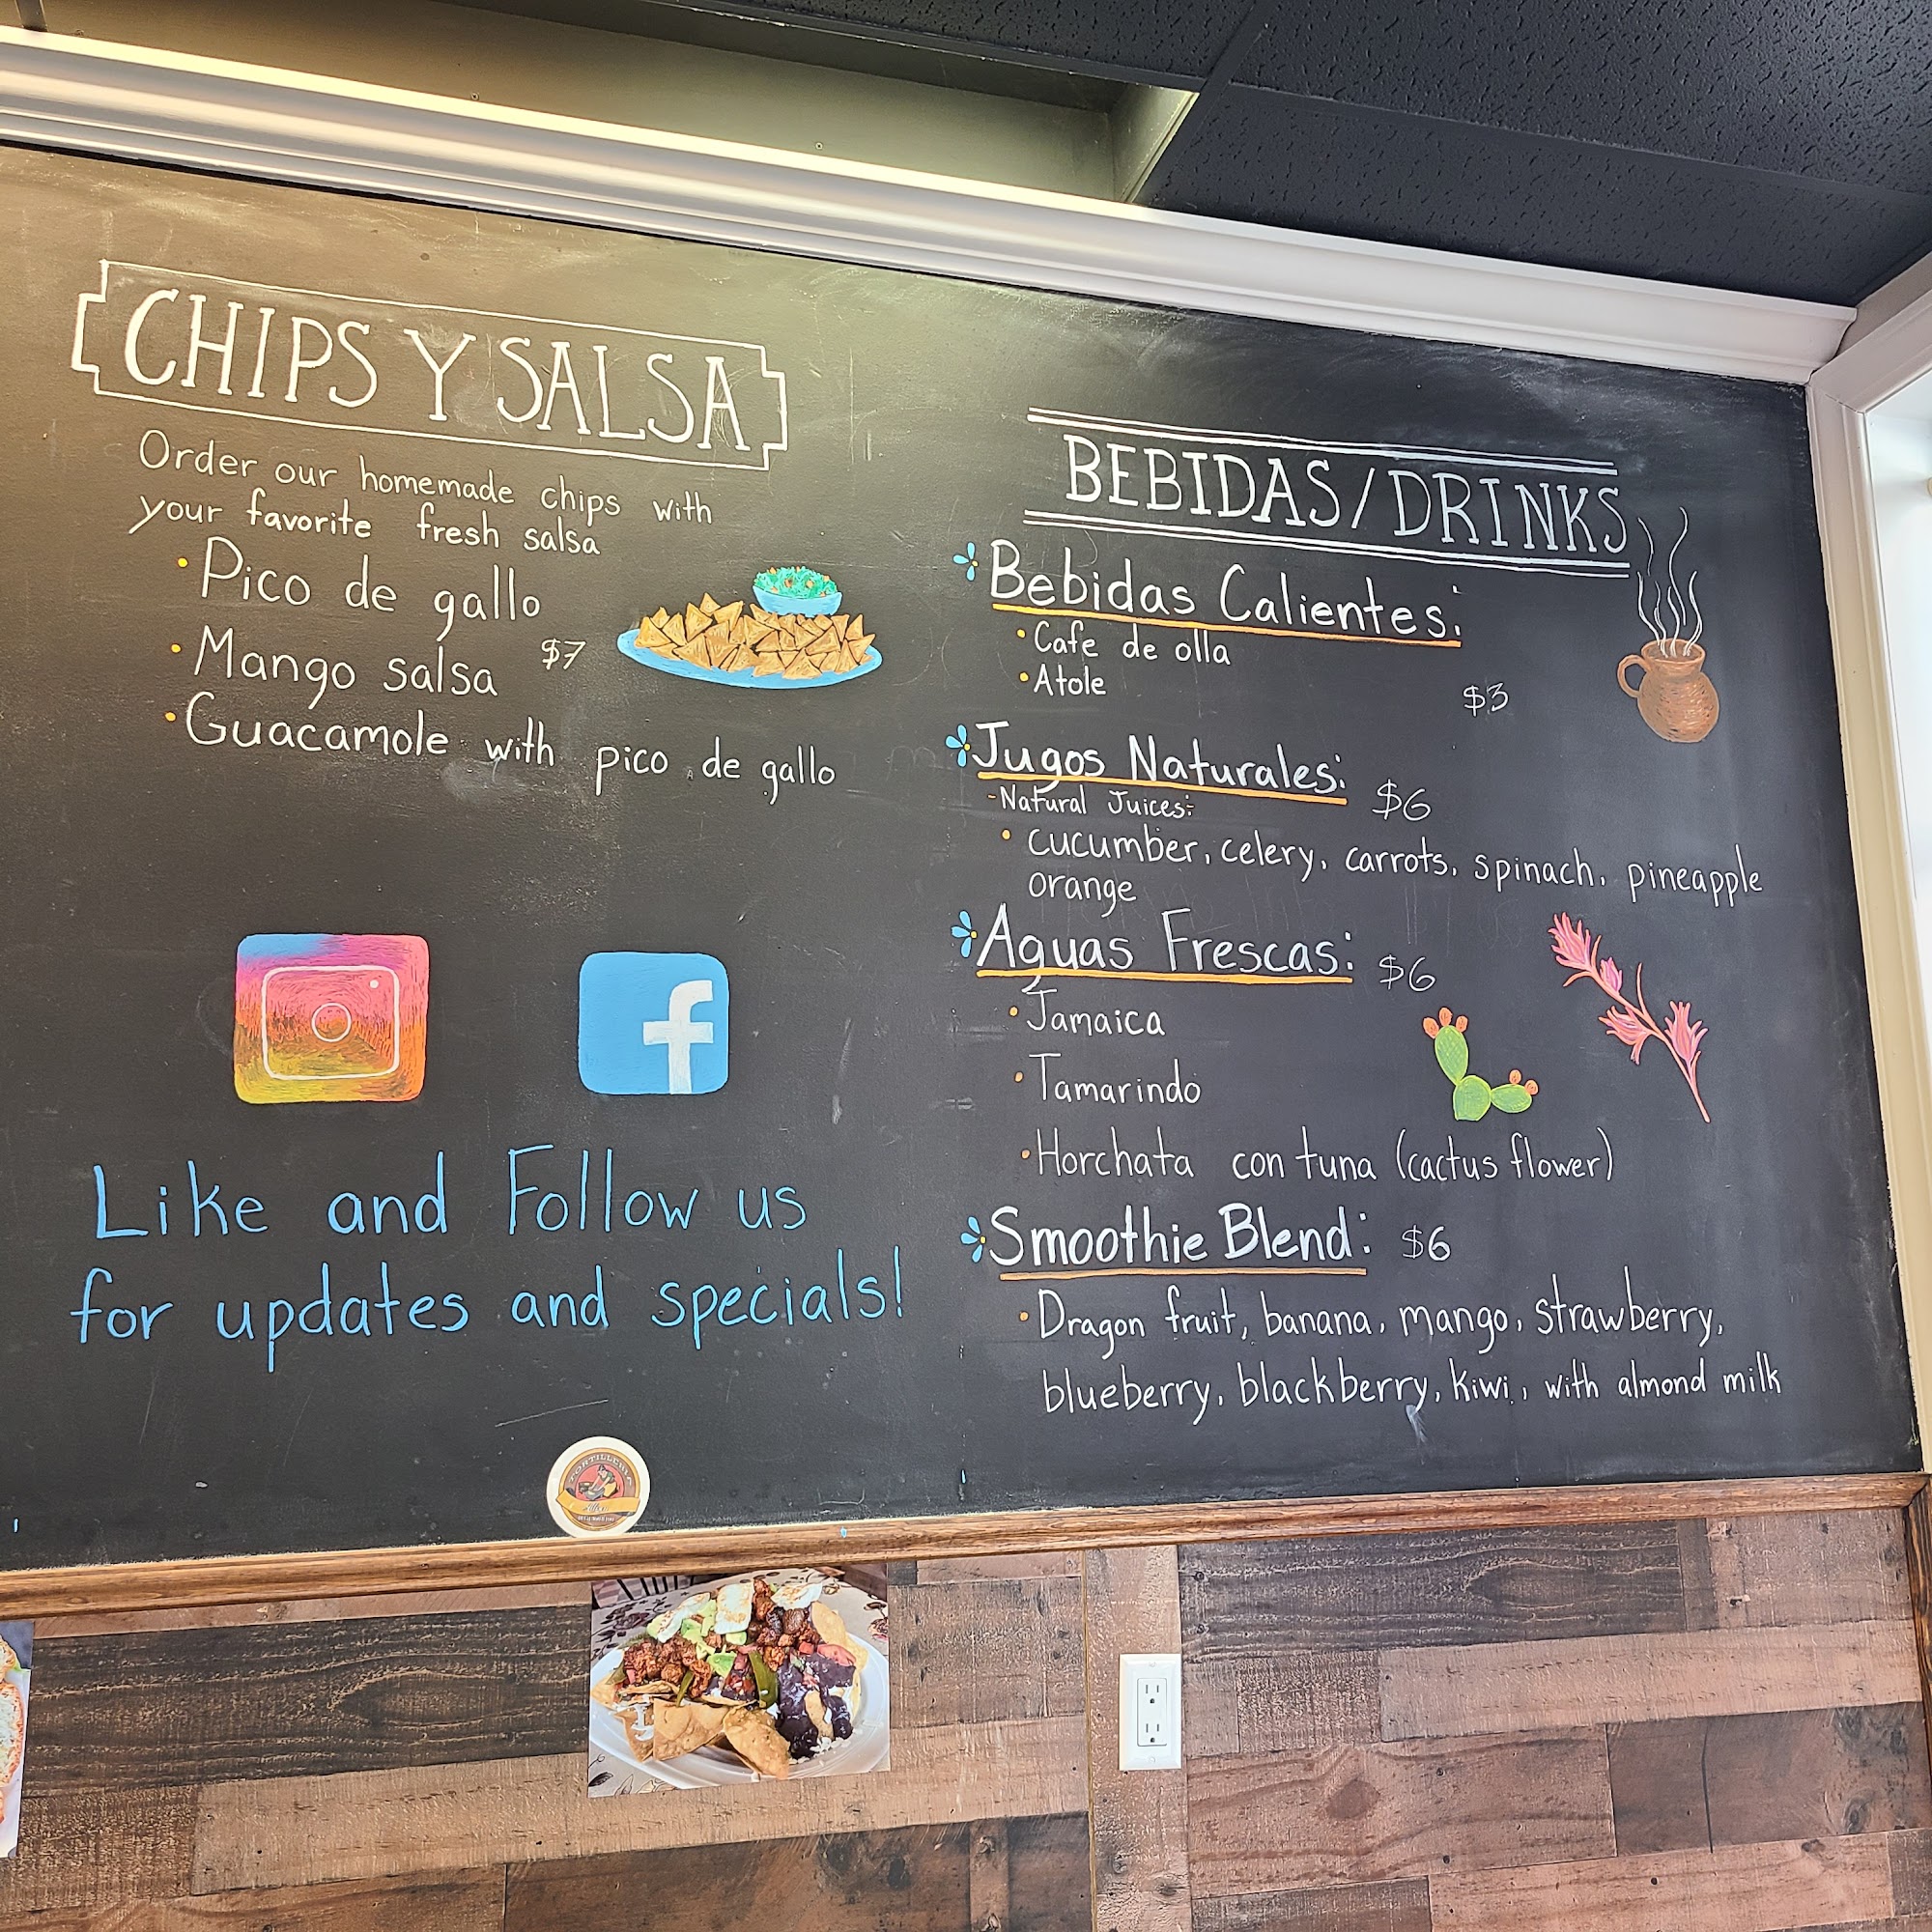 CHIPS Y SALSA
Order our homemade chips with
your favorite fresh salsa
• Pico de gallo
• Mango salsa $7
• Guacamole with pico de gallo
Like and Follow us
for updates and specials!
TORTILLERIA
BEBIDAS/DRINKS
Bebidas Calientes:
• Cafe de olla
• Atole
$3
Jugos Naturales: $6
-Natural Juices:
• cucumber, celery, carrots, spinach, pineapple
orange
Aguas Frescas: $6
• Jamaica
• Tamarindo
• Horchata con tuna (cactus flower)
Smoothie Blend: $6
• Dragon fruit, banana, mango, strawberry,
blueberry, blackberry, kiwi, with almond milk